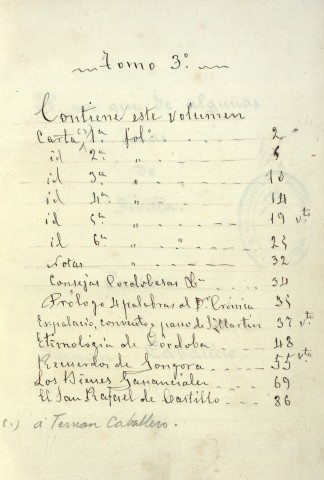 Tomo 3.º
Contiene este volumen
Carta (1) 1.ª fol.º 2
id 2.ª " 6
id 3.ª " 10
id 4.ª " 14
id 5.ª " 19 vto
id 6.ª " 25
Notas 32
Consejas Cordobesas &a 34
Prólogo 4 palabras al P.º Crónica 35
Expalacio, convento y paseo de S. Martin 37 vto
Etimología de Córdoba 48
Recuerdos de Gongora 55 vto
Los Bienes Gananciales 69
El San Rafael de Castillo 86
(1) á Fernan Caballero.